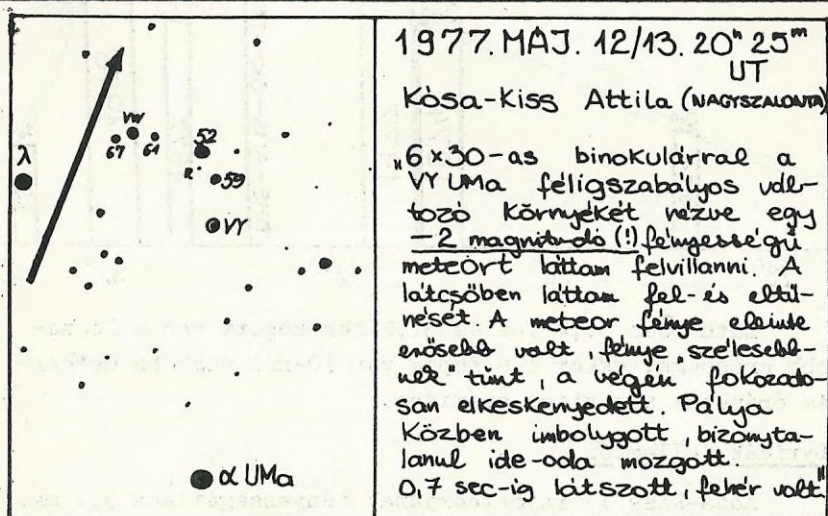 1977. MÁJ. 12/13. 20h 25m
UT
Kósa-Kiss Attila (NAGYSZALONTA)
"6×30-as binokulárral a
VY UMa féligszabályos vál-
tozó környékét nézve egy
-2 magnitudó (!) fényességű
meteort láttam felvillanni. A
látcsőben láttam fel- és eltű-
nését. A meteor fénye eleinte
erősebb volt, fénye szélesebb-
nek tűnt, a végén fokozato-
san elkeskenyedett. Pálya
közben imbolygott, bizonyta-
lanul ide-oda mozgott.
0,7 sec-ig látszott, fehér volt."
VW
67 61
52
R
59
λ
VY
α UMa